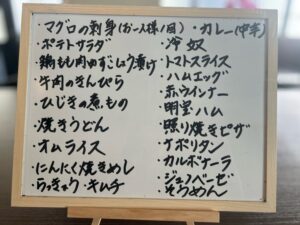 ・マグロの刺身(お一人様1回)
・ポテトサラダ
・鶏もも肉ゆずこしょう漬け
・牛肉のきんぴら
・ひじきの煮もの
・焼きうどん
・オムライス
・にんにく焼きめし
・らっきょう・キムチ
・カレー(中辛)
・冷奴
・トマトスライス
・ハムエッグ
・赤ウインナー
・明宝ハム
・照り焼きピザ
・ナポリタン
・カルボナーラ
・ジェノベーゼ
・そうめん